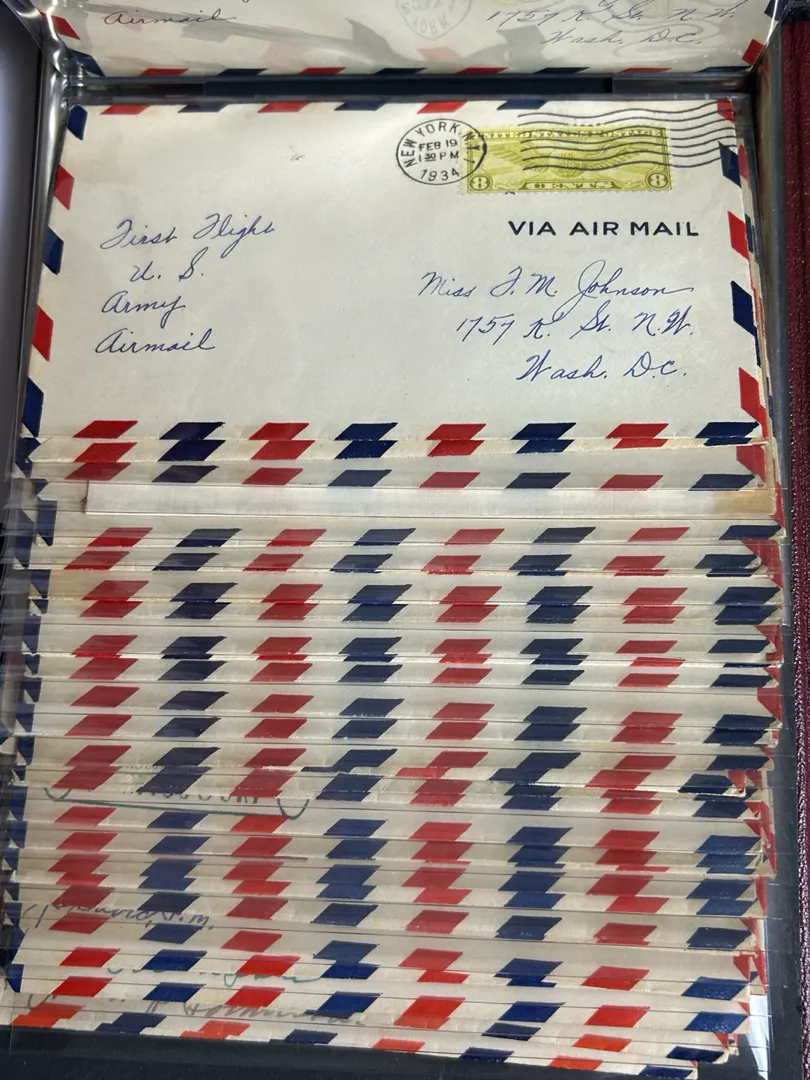 Airmail
1757 K. St. N.W.
Wash. D.C.
NEW YORK, N.Y.
FEB 19
1 30 PM
1934
UNITED STATES POSTAGE
8 CENTS 8
VIA AIR MAIL
First Flight
U. S.
Army
Airmail
Miss F. M. Johnson
1757 K. St. N.W.
Wash. D.C.